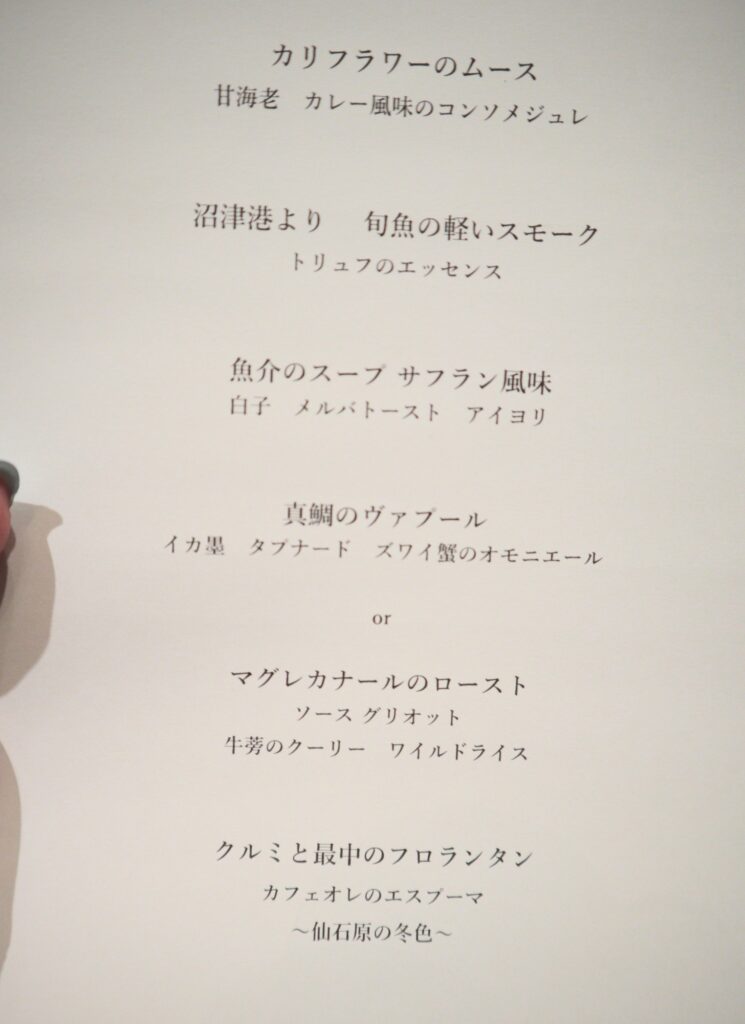 カリフラワーのムース
甘海老　カレー風味のコンソメジュレ
沼津港より　旬魚の軽いスモーク
トリュフのエッセンス
魚介のスープ サフラン風味
白子　メルバトースト　アイヨリ
真鯛のヴァプール
イカ墨　タプナード　ズワイ蟹のオモニエール
or
マグレカナールのロースト
ソース グリオット
牛蒡のクーリー　ワイルドライス
クルミと最中のフロランタン
カフェオレのエスプーマ
～仙石原の冬色～